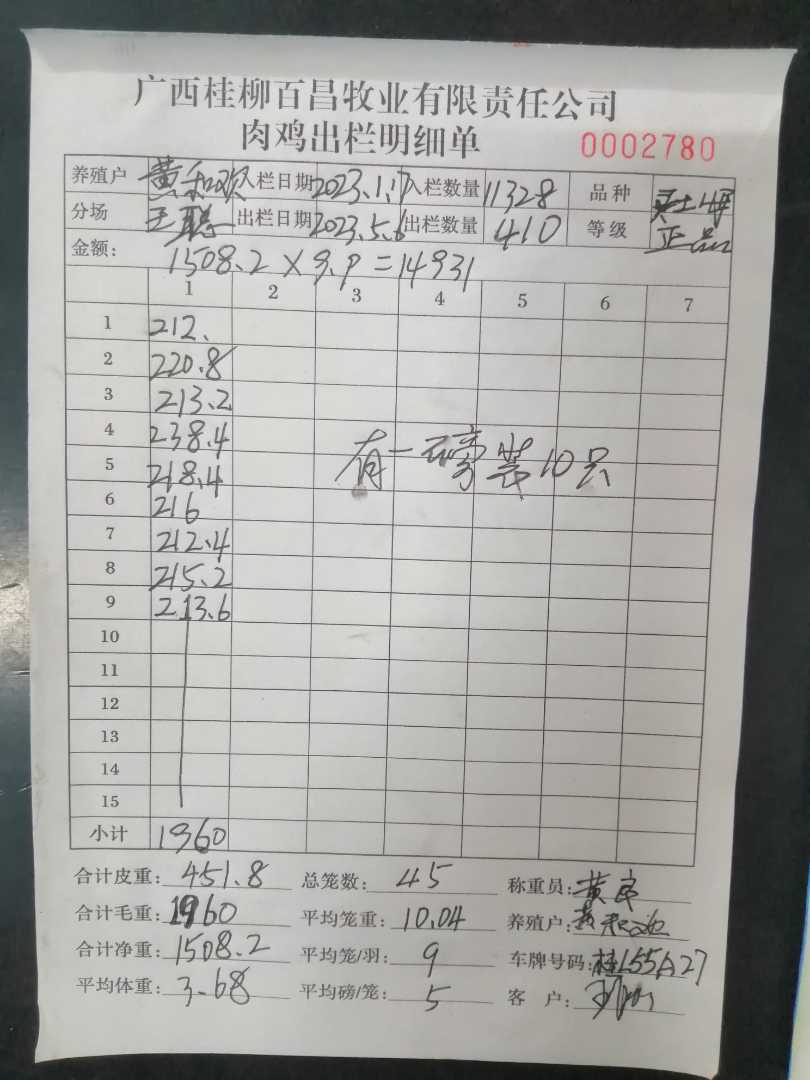 广西桂柳百昌牧业有限责任公司
肉鸡出栏明细单 0002780
养殖户 黄和欢 入栏日期 2023.1.17 入栏数量 11328 品种
分场 王聪 出栏日期 2023.5.6 出栏数量 410 等级 正品
金额: 1508.2×9.9=14931
1 2 3 4 5 6 7
1 212.
2 220.8
3 213.2
4 238.4
有一磅装10只
5 218.4
6 216
7 212.4
8 215.2
9 213.6
10
11
12
13
14
15
小计 1960
合计皮重: 451.8 总笼数: 45 称重员:
合计毛重: 1960 平均笼重: 10.04 养殖户:
合计净重: 1508.2 平均笼/羽: 9 车牌号码: 桂L55A27
平均体重: 3.68 平均磅/笼: 5 客户: